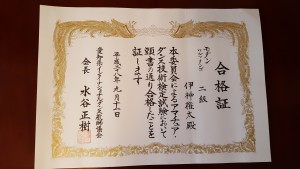 合格証
モダン
ラテン
二級
伊神雅太殿
本委員会によるアマチュア・
ダンス技術検定試験において
頭書の通り合格したことを
証します
平成二八年九月十一日
会長 水谷正樹